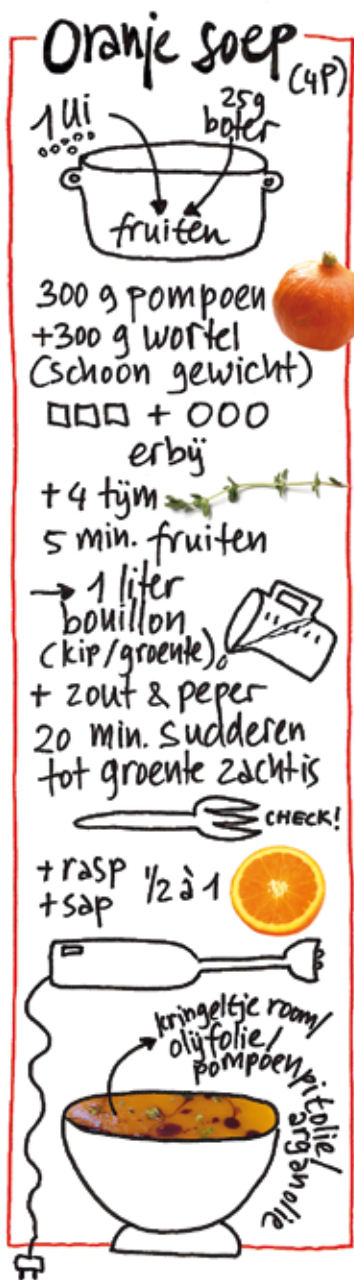 Oranje soep
(4P)
1 ui
25g
boter
fruiten
300 g pompoen
+300 g wortel
(schoon gewicht)
+
erbij
+ 4 tijm
5 min. fruiten
→ 1 liter
bouillon
(kip/groente)
+ zout & peper
20 min. sudderen
tot groente zacht is
CHECK!
+ rasp
+ sap
1/2 à 1
kringeltje room/
olijfolie/
pompoenpitolie/
arganolie